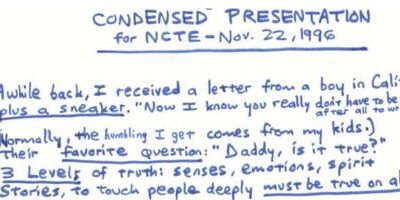 CONDENSED PRESENTATION
for NCTE - Nov. 22, 1996
Awhile back, I received a letter from a boy in Cali
plus a sneaker. "Now I know you really don't have to be
after all to wr
Normally, the humbling I get comes from my kids.)
Their favorite question: "Daddy, is it true?"
3 Levels of truth: senses, emotions, spirit
Stories, to touch people deeply must be true on al